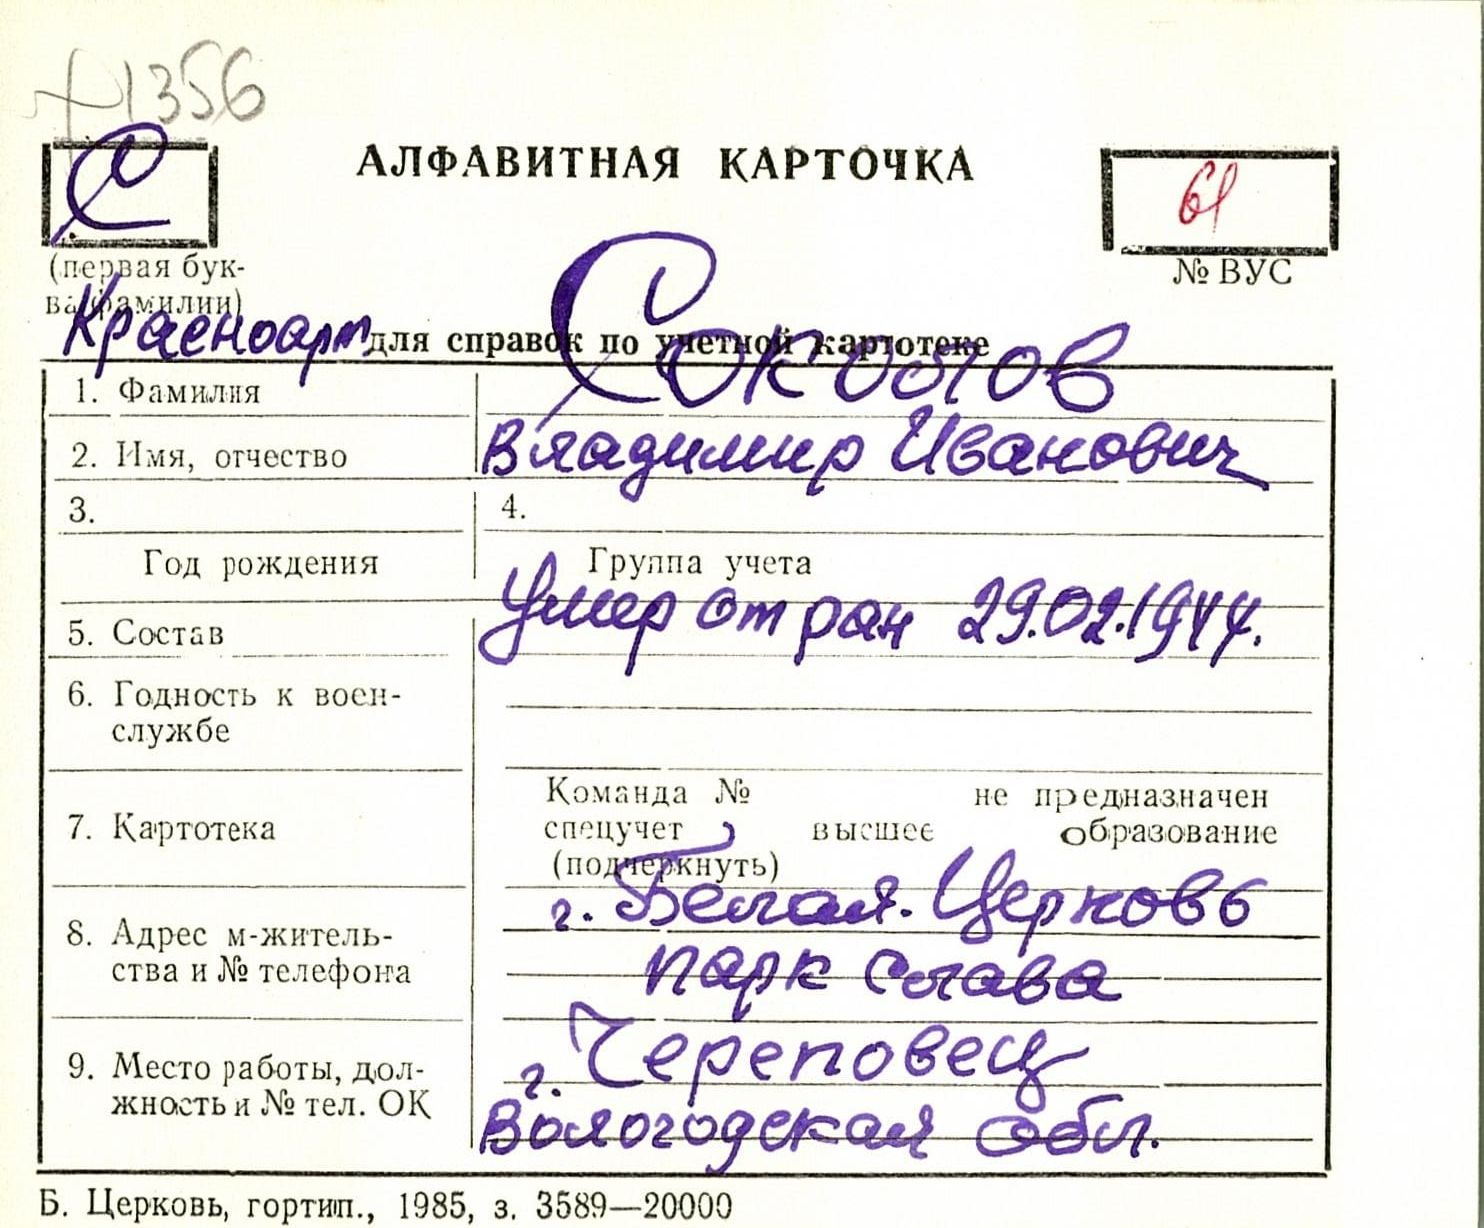 1356
С
АЛФАВИТНАЯ КАРТОЧКА
61
(первая бук-
ва фамилии)
№ ВУС
Красноарм
для справок по учетной картотеке
1. Фамилия Соколов
2. Имя, отчество Владимир Иванович
3. 4.
Год рождения Группа учета
5. Состав Умер от ран 29.02.1944.
6. Годность к воен-
службе
Команда № не предназначен
7. Картотека спецучет высшее образование
(подчеркнуть)
г. Белая. Церковь
8. Адрес м-житель-
ства и № телефона парк Слава
г. Череповец
9. Место работы, дол-
жность и № тел. ОК Вологодская обл.
Б. Церковь, гортип., 1985, з. 3589—20000